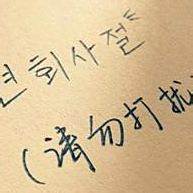 면회사절"
(请勿打扰